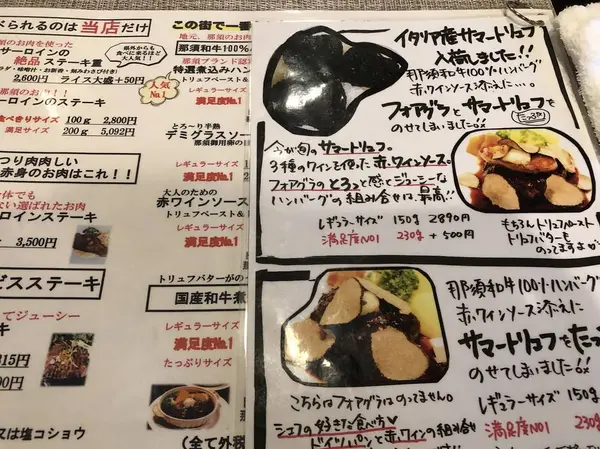 べられるのは当店だけ
須のお肉を使った
サーロインの
絶品 ステーキ重
ラダ・味噌付・お新香・刻みわさび付き)
2,600円 ライス大盛+50円
県外からも
食べに来るほど
大人気!!
人気
No.1
ーロインのステーキ
食べきりサイズ 100g 2,800円
満足サイズ 200g 5,092円
つり肉肉しい
赤身のお肉はこれ!!
体でも
ない選ばれたお肉
ロインステーキ
3,500円
ビスステーキ
てジューシー
315円
又は塩コショウ
この街で一番
地元、那須のお肉
那須和牛100%
那須ブランド認
特選煮込みハン
トリュフペースト&ト
レギュラーサイズ
満足度No.1
とろ～り半熟
デミグラスソー
那須御用卵の目
レギュラーサイズ
満足度No.1
大人のための
赤ワインソース
トリュフペースト&ト
レギュラーサイズ
満足度No.1
トリュフバターがの
国産和牛煮
レギュラーサイズ
満足度No.1
たっぷりサイズ
(全て外税
イタリア産サマートリュフ
入荷しました!!
那須和牛100%ハンバーグ
赤ワインソース添え…。
フォアグラとサマートリュフを
たっぷり
のせてしまいました!!
今が旬のサマートリュフ。
3種のワインを使った赤ワインソース。
フォアグラのとろっと感とジューシーな
ハンバーグの組み合せは、最高!!
レギュラーサイズ 150g 2890円
満足度NO1 230g +500円
もちろんトリュフペースト
トリュフバターも
のってますよ
那須和牛100%ハンバーグ
赤ワインソース添えに
サマートリュフをたっ
のせてしまいました!!
こちらはフォアグラはのってません。
レギュラーサイズ 150g
シェフの好きな食べ方♡
ドイツパンと赤ワインの組み合せ
満足度NO1 230g